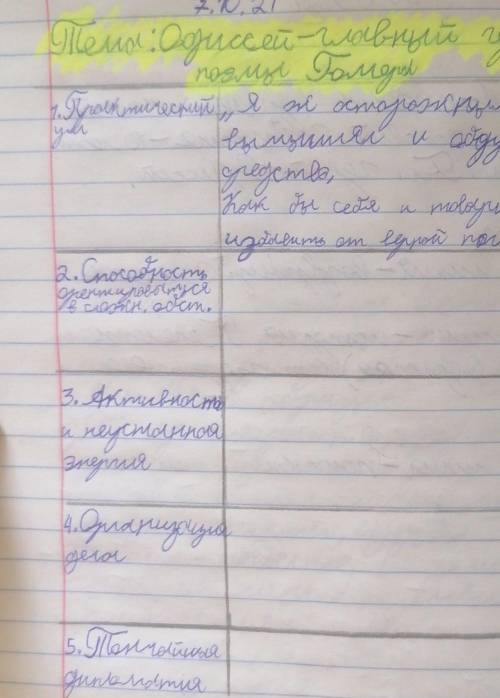 7.10.21
Тема: Одиссей - главный
поэмы Гомера
1. Практический
ум
„Я ж осторожны
вымышлял и обду
средства,
Как бы себя и товари
избавить от верной пог
2. Способность
орентироваться
в сложн. обст.
3. Активность
и неустанная
энергия
4. Организация
дела
5. Тончайшая
дипломатия